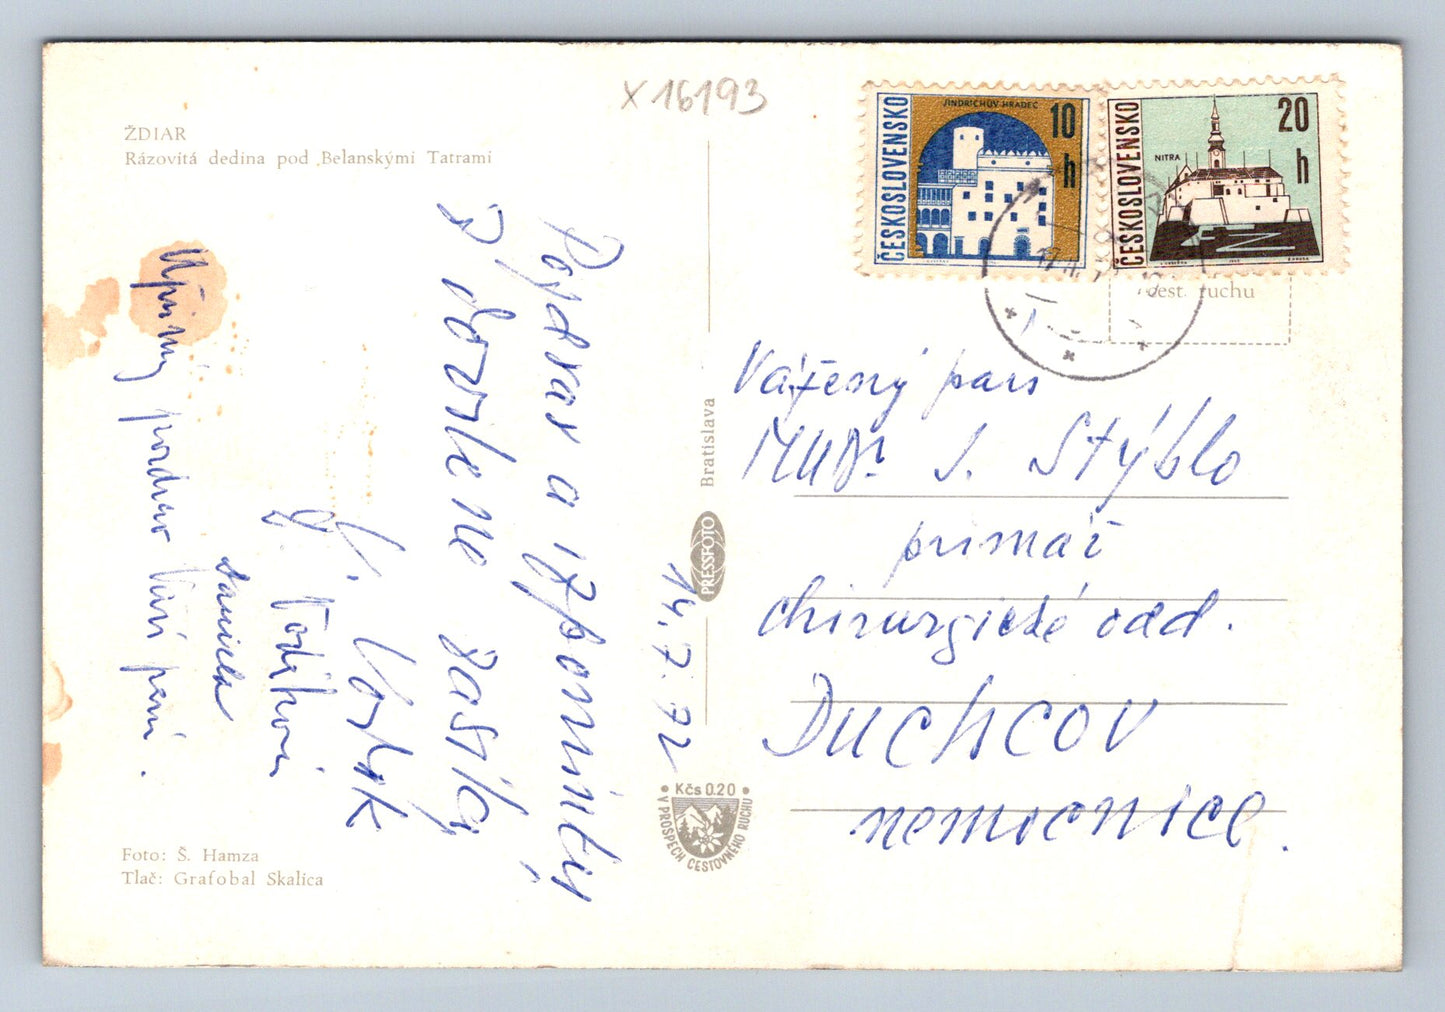 X 16193
ŽDIAR
Rázovitá dedina pod Belanskými Tatrami
Pozdrav a vzpomínky
z dovolené zasílá
J. Vojtk
Todtkovi
Daniela
Upřímný pozdrav Vám paní
14.7.72
Foto: Š. Hamza
Tlač: Grafobal Skalica
Bratislava
PRESSFOTO
Kčs 0.20
V PROSPECH CESTOVNÉHO RUCHU
ČESKOSLOVENSKO
JINDŘICHŮV HRADEC
10 h
ČESKOSLOVENSKO
NITRA
20 h
cest. ruchu
Vážený pan
MUDr J. Stýblo
primář
chirurgické odd.
DUCHCOV
nemocnice.